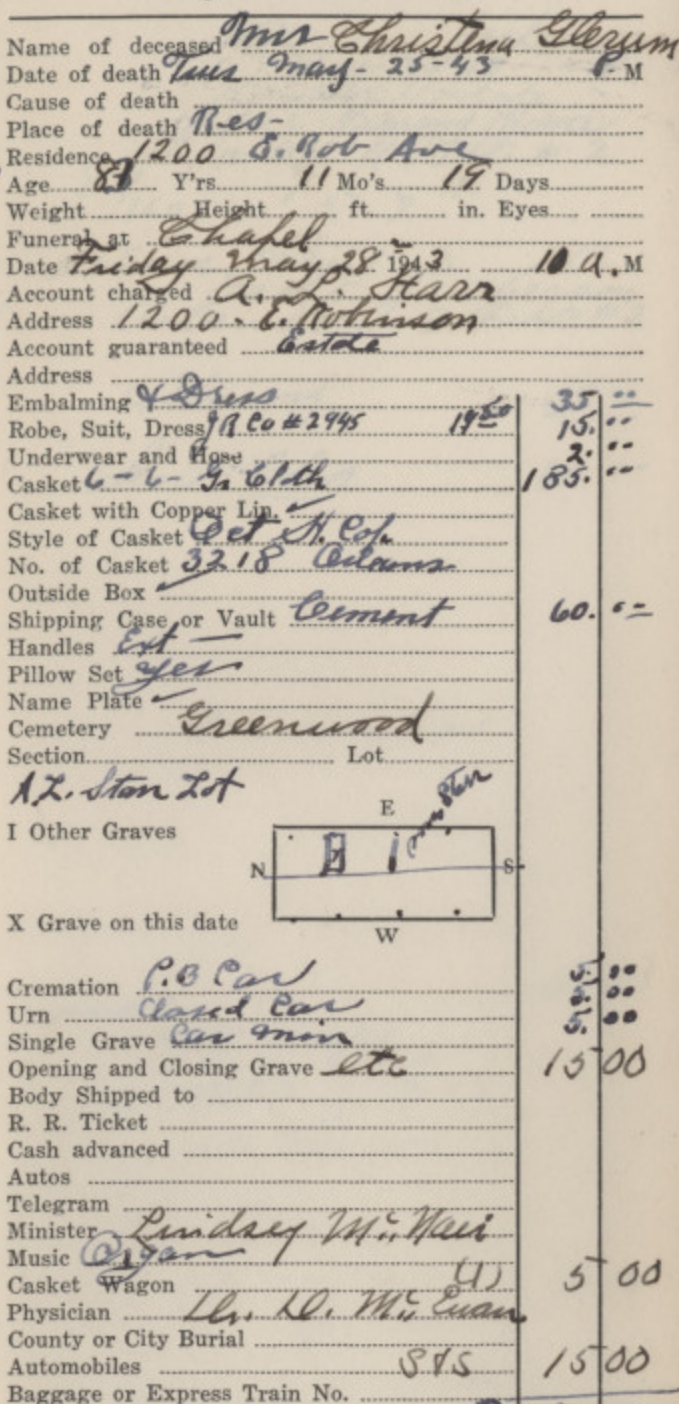 Name of deceased Mrs Christena Glerum
Date of death Tues May - 25 - 43 P. M
Cause of death
Place of death Res -
Residence 1200 E. Rob Ave
Age Y'rs 11 Mo's 19 Days
Weight Height ft. in. Eyes
Funeral at Chapel
Date Friday May 28 1943 10 A. M
Account charged A. L. Starr
Address 1200 - E. Robinson
Account guaranteed Estate
Address
Embalming & Dress 35 --
Robe, Suit, Dress J R Co # 2945 14 50 15. --
Underwear and Hose 2. --
Casket 6 - 6 - Gr Cloth 185. --
Casket with Copper Lin. ✓
Style of Casket Oct H. Cop.
No. of Casket 3218
Outside Box ✓
Shipping Case or Vault Cement 60. --
Handles Ext —
Pillow Set yes
Name Plate ✓
Cemetery Greenwood
Section Lot
A. L. Starr Lot
I Other Graves
E
N S
X Grave on this date
W
Cremation P. B Car 5. 00
Urn Closed Car 5. 00
Single Grave Car min 5. 00
Opening and Closing Grave etc 15 00
Body Shipped to
R. R. Ticket
Cash advanced
Autos
Telegram
Minister Lindsey McNair
Music Organ
Casket Wagon (1) 5 00
Physician Dr. D. McEwan
County or City Burial
Automobiles S & S 15 00
Baggage or Express Train No.